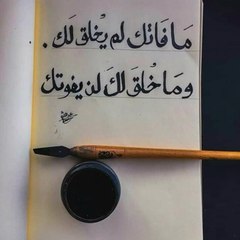 مَا فَاتَك لم يُخلق لَك .
ومَا خُلقَ لكَ لن يفوتك